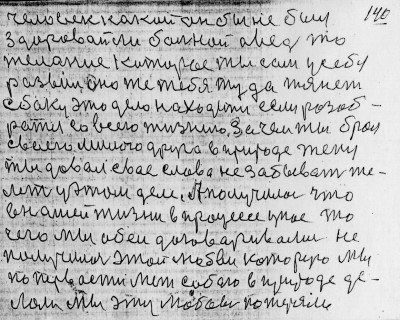 человек какой он бы не был 140
здоровай ли болной а ведь это
желание которое ты сам у себя
развил оно же тебя туда тянет
сбоку это дело находит если розоб-
рался со всею жизнию, Зачем ты брал
своего милого друга в природе жену
ты довал свае слова не забывать же-
лел у этом деле, А получилос что
в нашей жизни в процессе утое то
чего мы обеи договаривалис не
получилос этой любви которую мы
по первости мел собою в природе де-
лали мы эту любовь потеряли